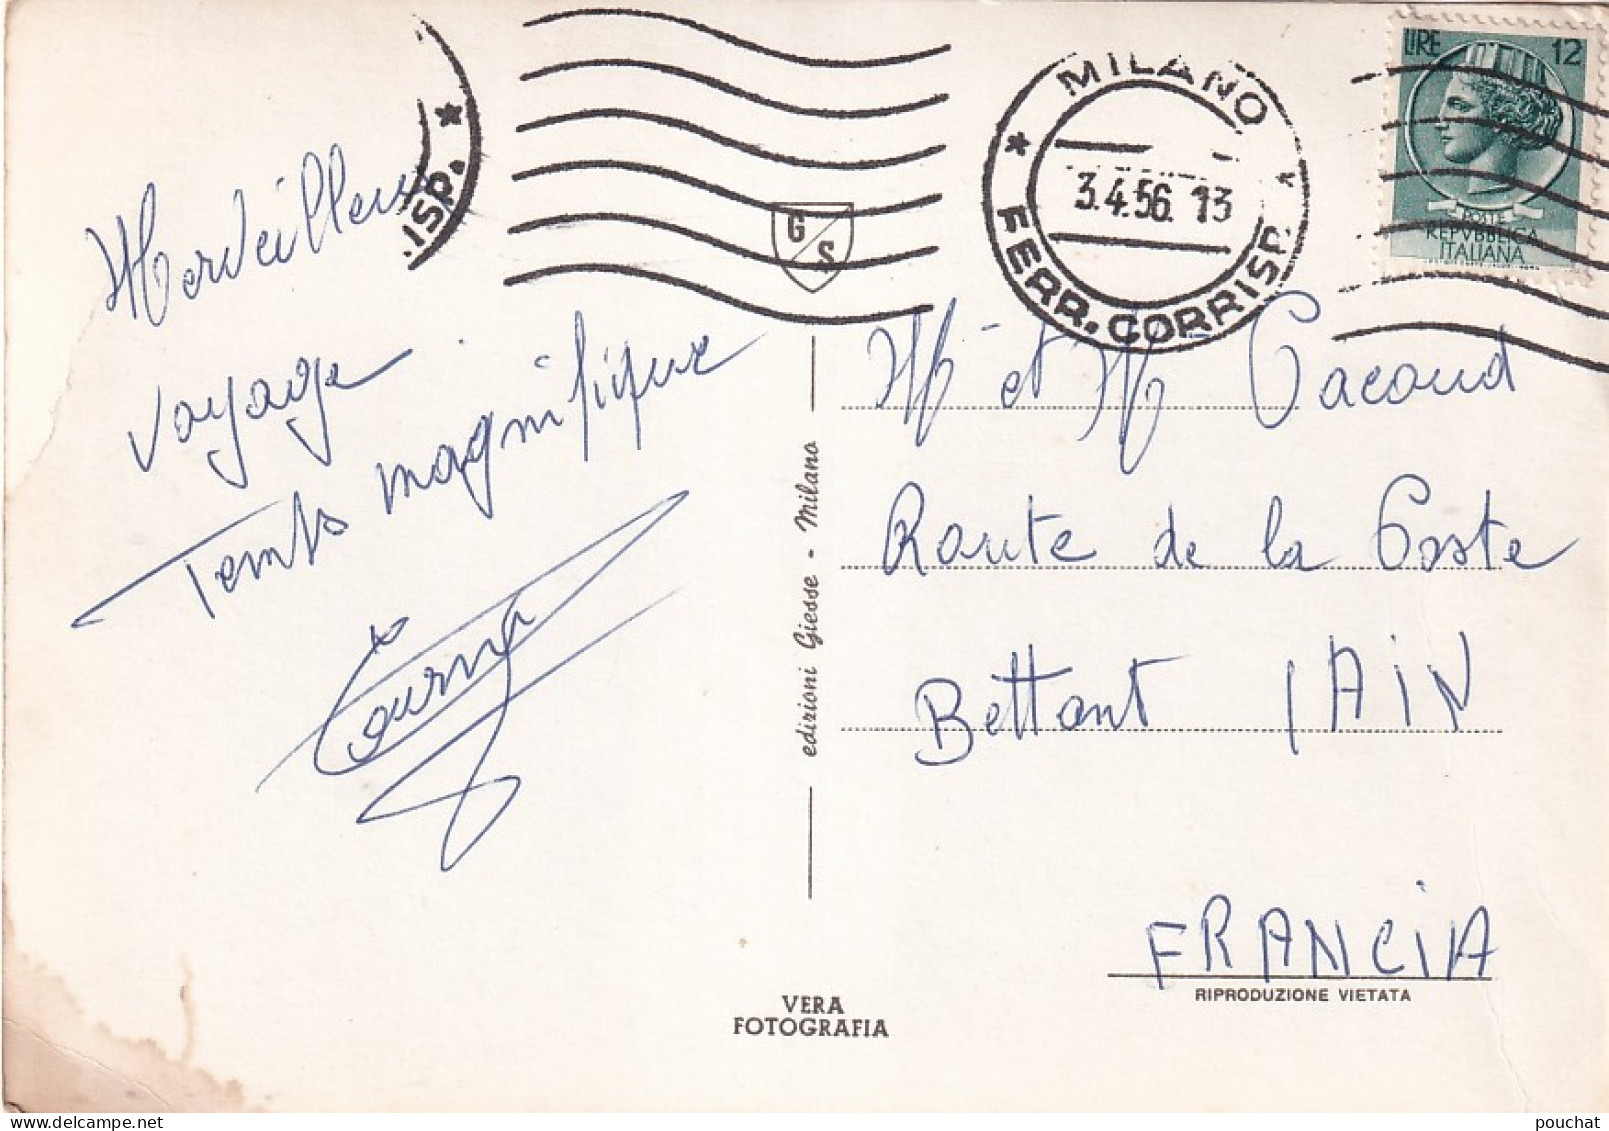 Merveilleux
voyage
Temps magnifique
MILANO
3.4.56. 13
FERR. CORRISP.
ISP.
LIRE 12
POSTE
REPVBBLICA
ITALIANA
G S
M et M Cacoud
Route de la Coste
Bettant (AIN
FRANCIA
RIPRODUZIONE VIETATA
edizioni Giesse - Milano
VERA
FOTOGRAFIA
pouchat